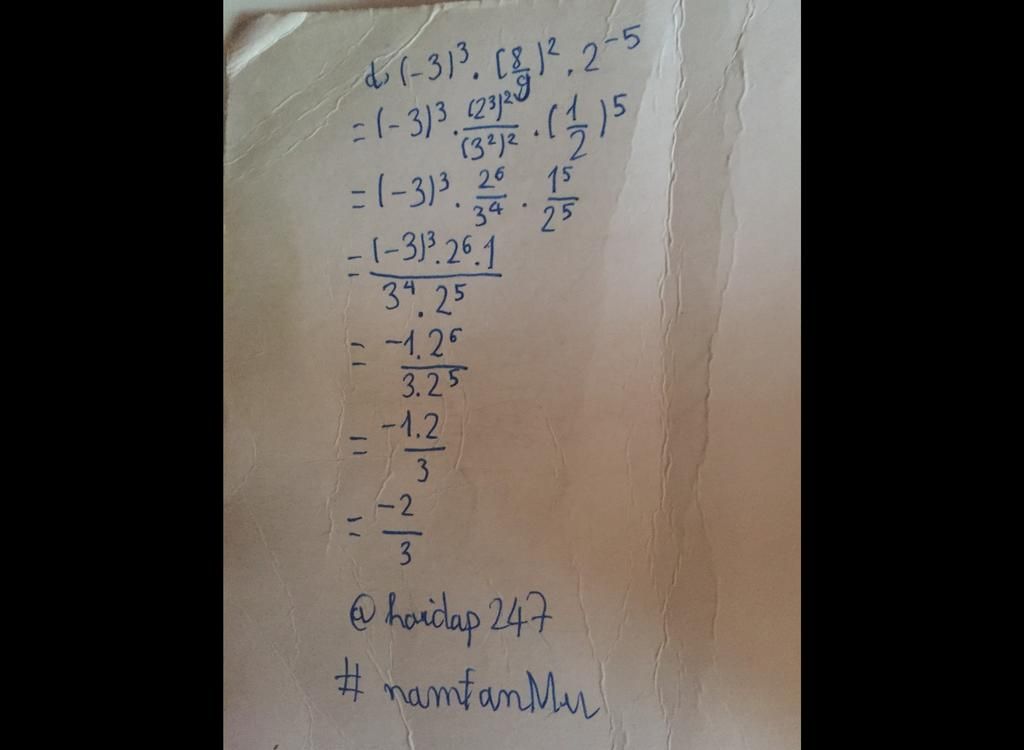 d, (-3)³ . (8/9)² . 2⁻⁵
= (-3)³ . (2³)²/(3²)² . (1/2)⁵
= (-3)³ . 2⁶/3⁴ . 1⁵/2⁵
= (-3)³.2⁶.1/3⁴.2⁵
= -1.2⁶/3.2⁵
= -1.2/3
= -2/3
@hoidap247
# namtanMu